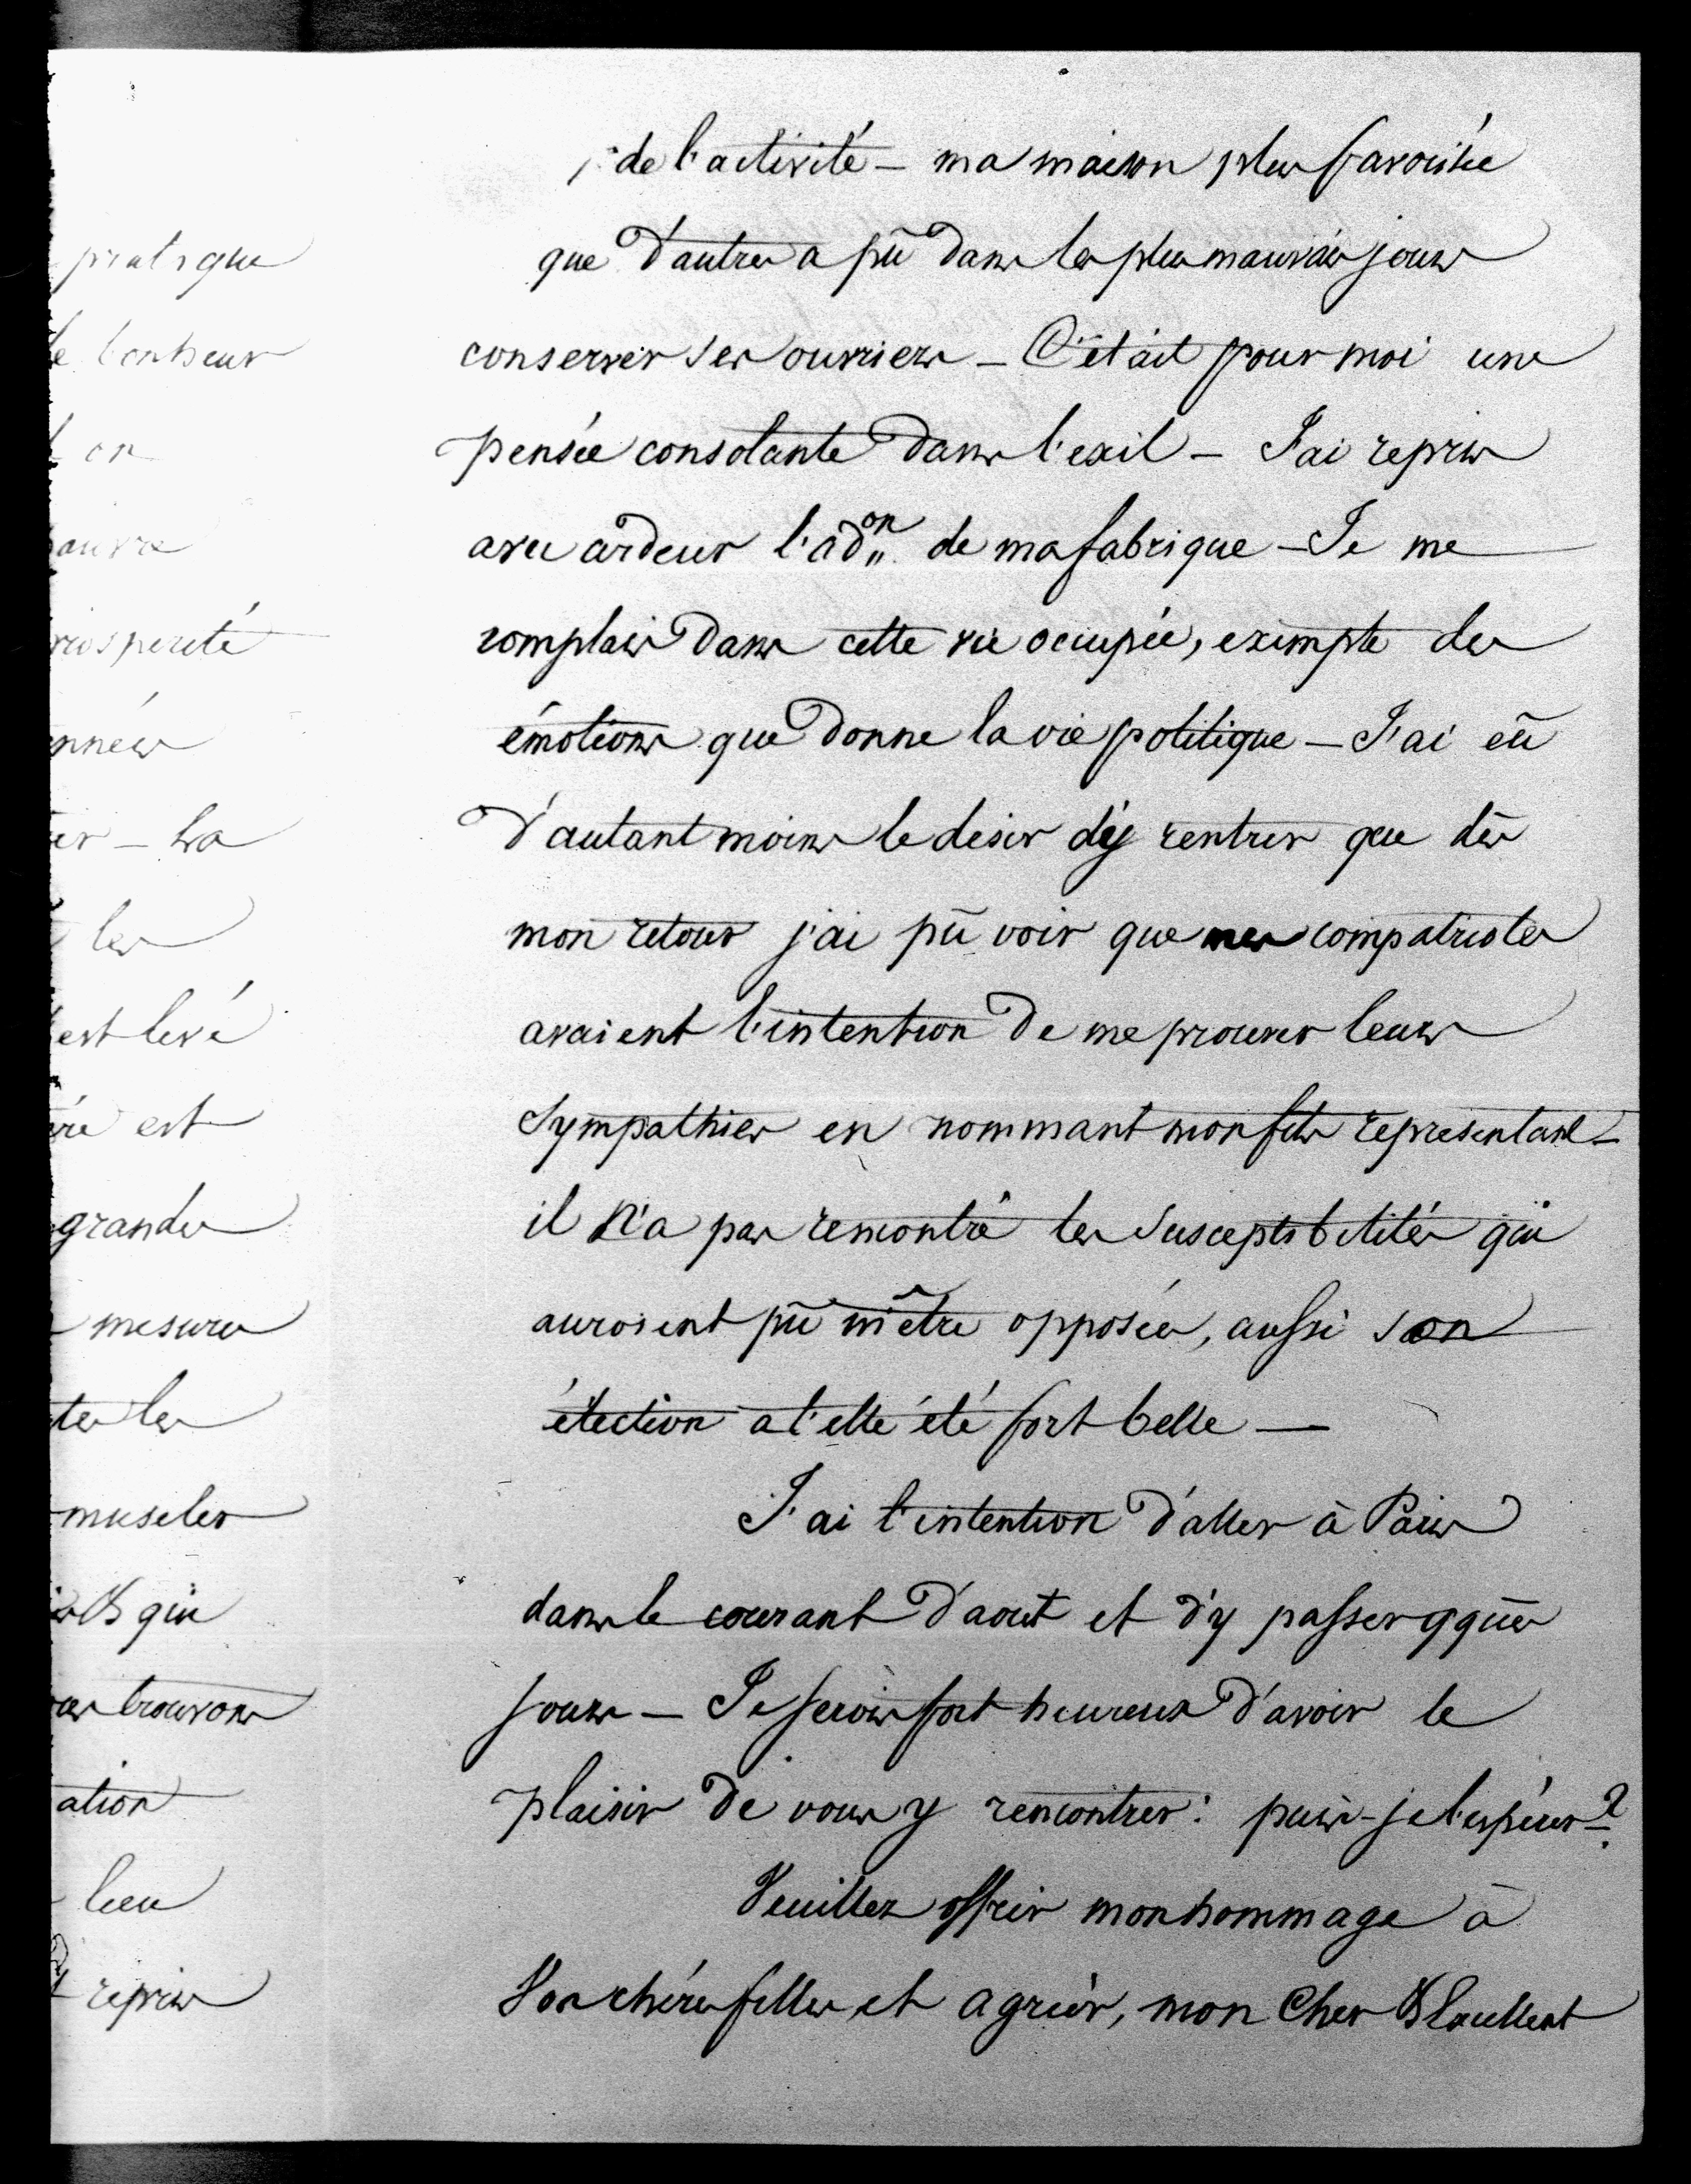 pratique
bonheur
on
prospérité
er - La
les
est levé
est
grandes
mesures
museler
qui
trouvons
ation
lieu
repris
de l'activité - ma maison plus favorisée
que d'autres a pû dans les plus mauvais jours
conserver ses ouvriers - C'était pour moi une
pensée consolante dans l'exil - J'ai repris
avec ardeur l'adon de ma fabrique - Je me
complais dans cette vie occupée, exempte des
émotions que donne la vie politique - J'ai eû
d'autant moins le desir d'y rentrer que dès
mon retour j'ai pû voir que mes compatriotes
avaient l'intention de me prouver leurs
sympathies en nommant mon fils représentant -
il n'a pas rencontré les susceptibilités qui
auroient pû m'être opposées, aussi son
élection a t'elle été fort belle -
J'ai l'intention d'aller à Paris
dans le courant d'aout et d'y passer qques
jours - Je serois fort heureux d'avoir le
plaisir de vous y rencontrer : puis-je l'espérer ?
Veuillez offrir mon hommage à
Vos chères filles et agréer, mon Cher